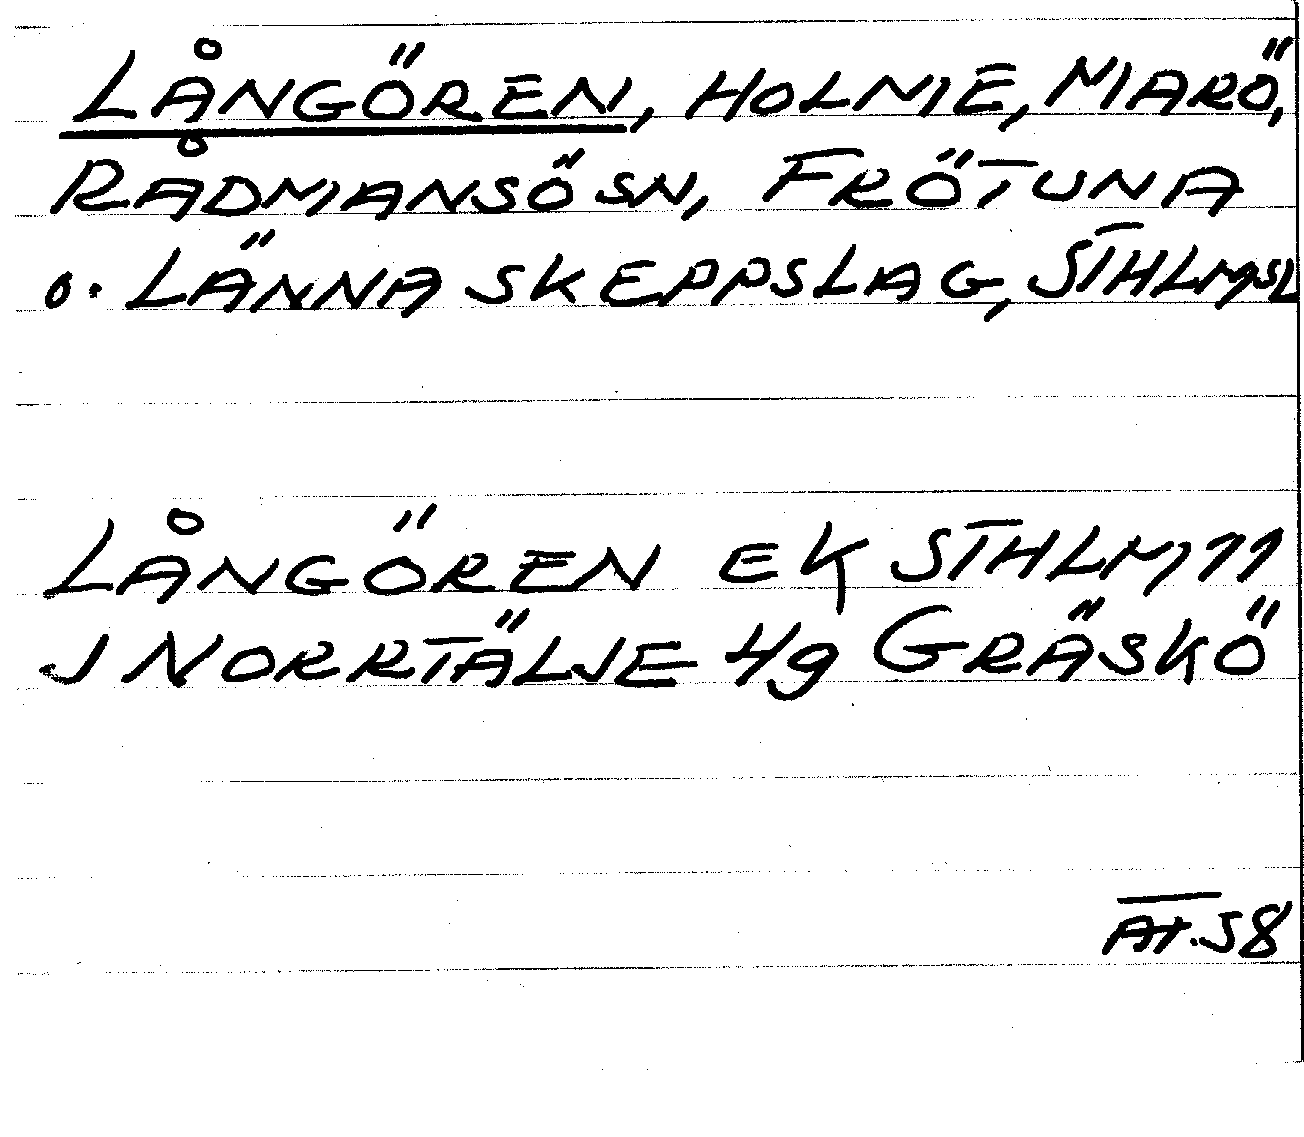 LÅNGÖREN, HOLME, MARÖ,
RÅDMANSÖ SN, FRÖTUNA
O. LÄNNA SKEPPSLAG, STHLMSL
LÅNGÖREN EK STHLM 11
J NORRTÄLJE 4g GRÄSKÖ
AT.58